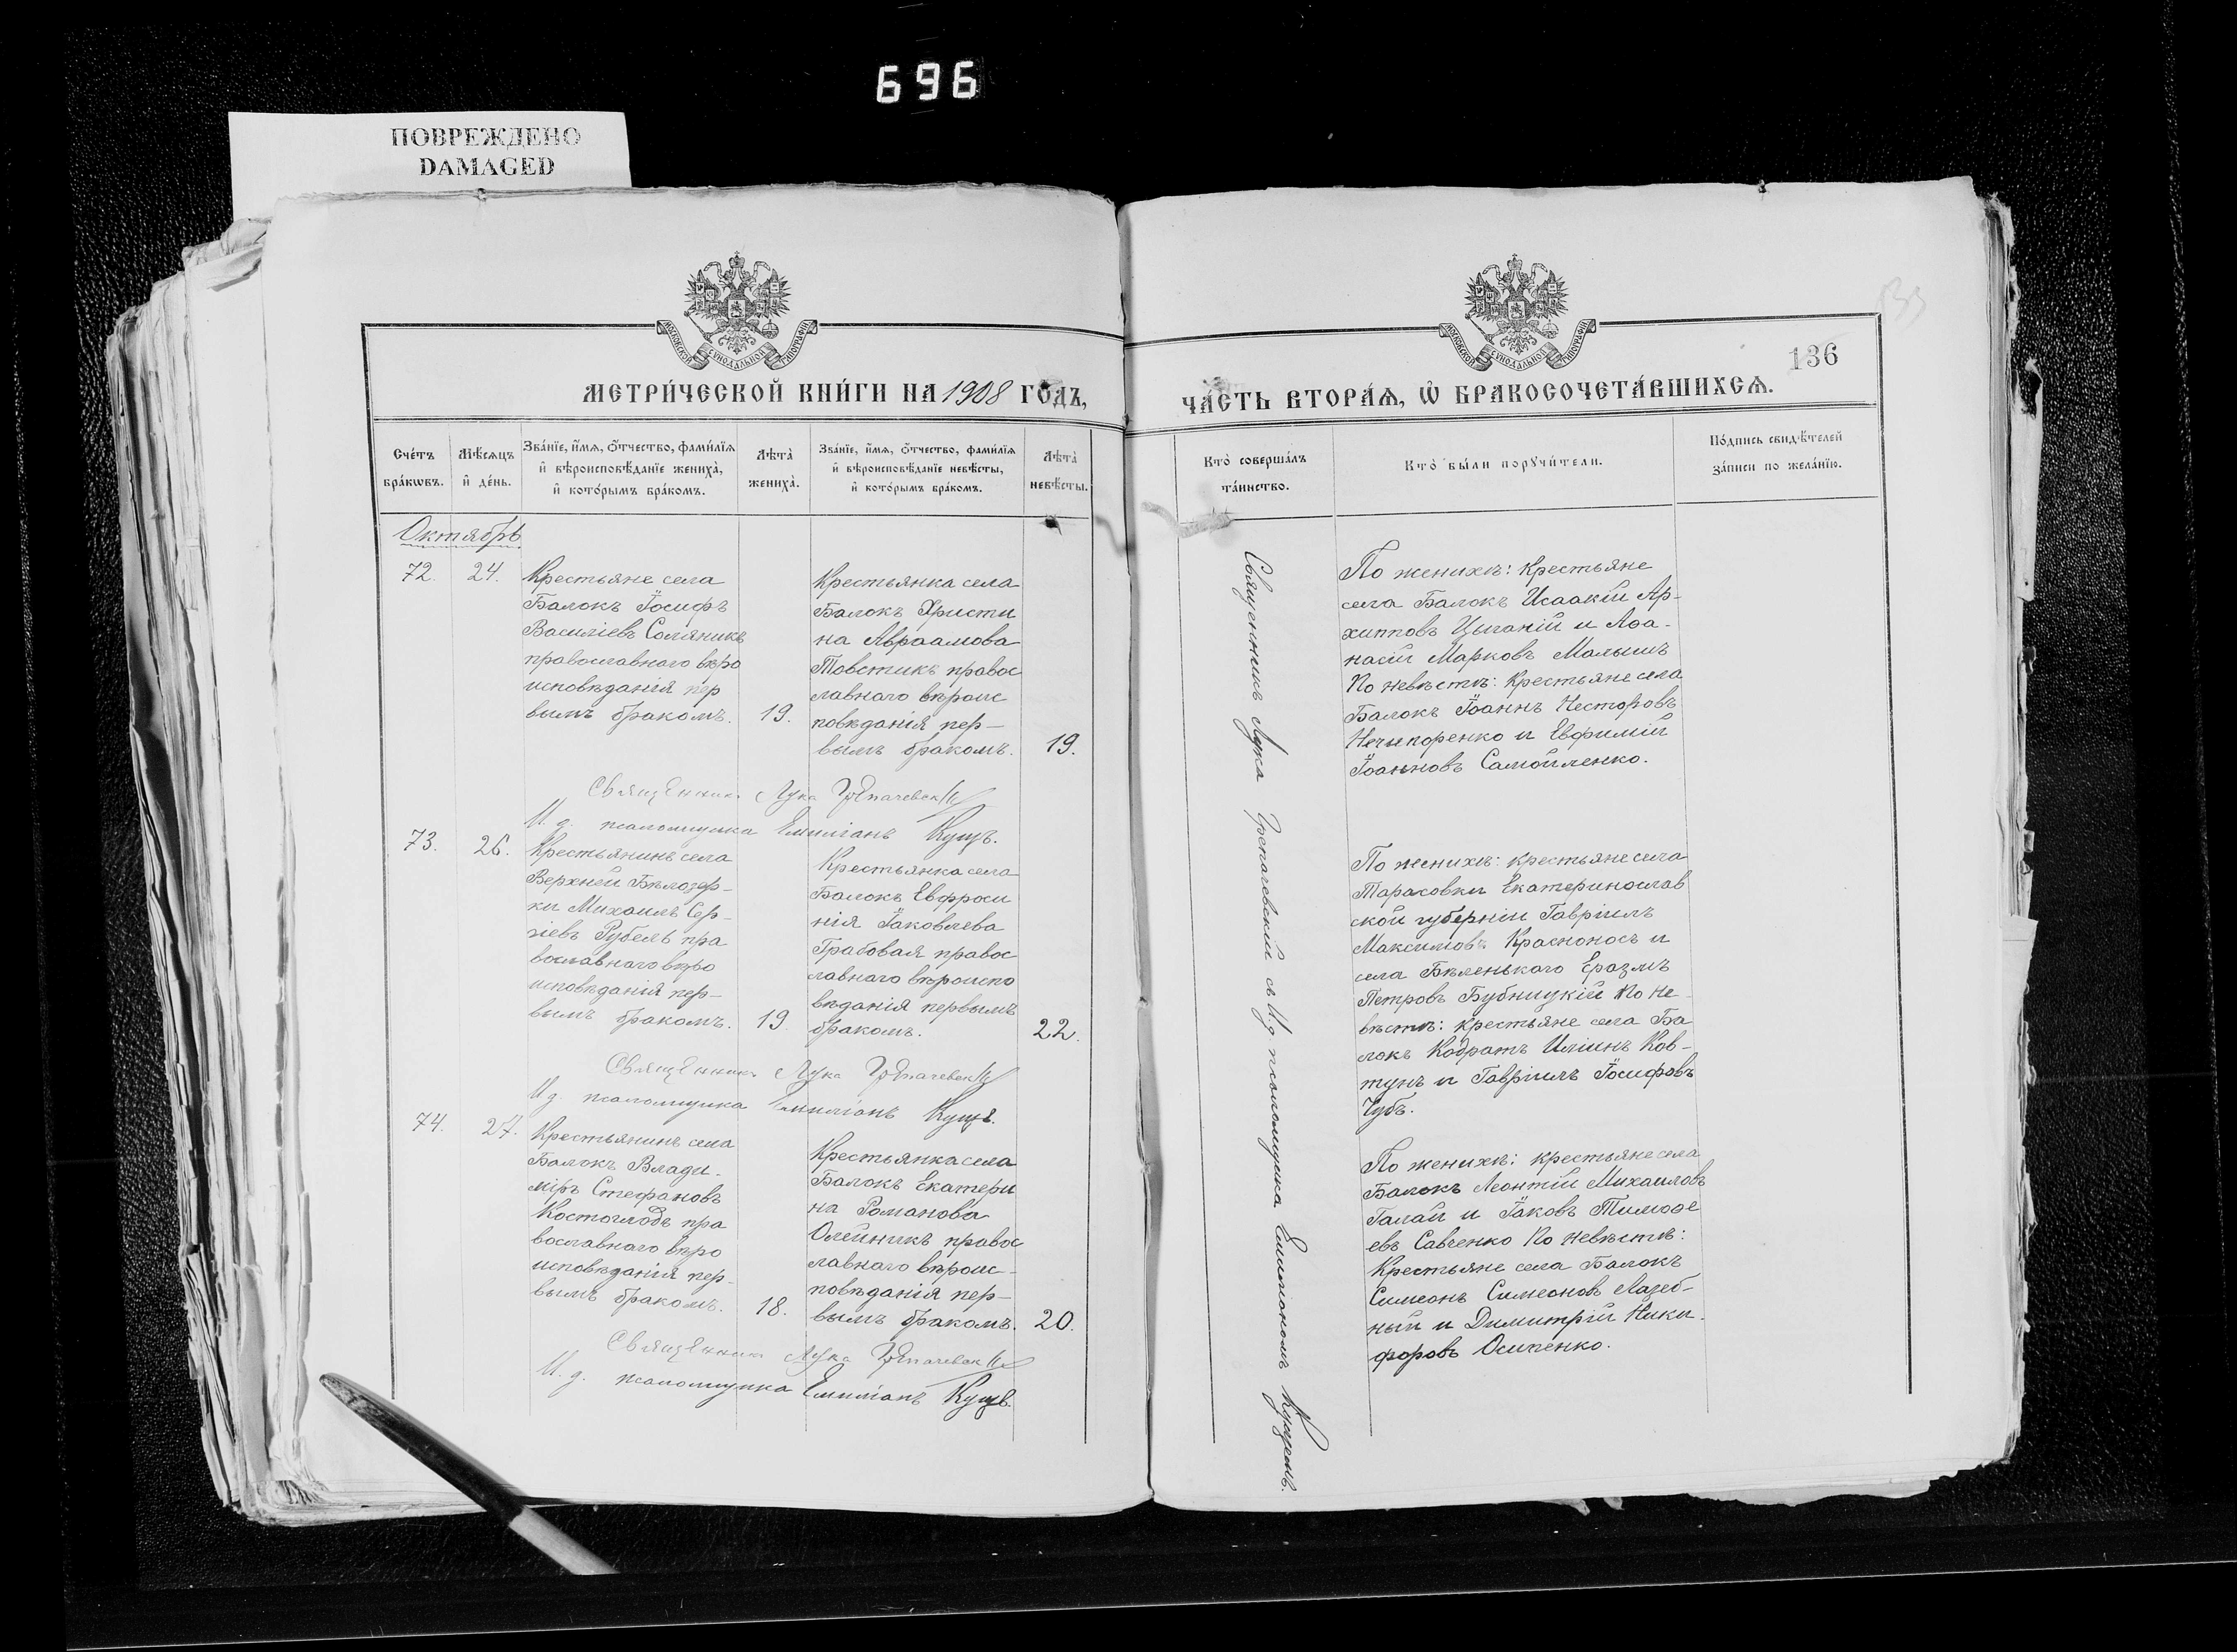 696
ПОВРЕЖДЕНО
DAMAGED
МОСКОВСКОЙ СѴНОДАЛЬНОЙ ТИПОГРАФІИ
МЕТРИ́ЧЕСКОЙ КНИ́ГИ НА 1908 ГО́ДЪ,
Сче́тъ бра́кѡвъ.
Мѣ́сяцъ и҆ де́нь.
Зва́нїе, и҆́мѧ, ѻ҆́тчество, фами́лїѧ
и҆ вѣроисповѣ́данїе жениха̀,
и҆ кото́рымъ бра́комъ.
Лѣта̀ жениха̀.
Зва́нїе, и҆́мѧ, ѻ҆́тчество, фами́лїѧ
и҆ вѣроисповѣ́данїе невѣ́сты,
и҆ кото́рымъ бра́комъ.
Лѣта̀ невѣ́сты.
Октябрь
72. 24.
Крестьяне села
Балокъ Іосифъ
Василіевъ Соляникъ
православнаго вѣро
исповѣданія пер
вымъ бракомъ. 19.
Крестьянка села
Балокъ Христи
на Авраамова
Товстикъ правос
лавнаго вѣроис
повѣданія пер-
вымъ бракомъ. 19.
Священникъ Лука Грепачевскій
И. д. псаломщика Емиліанъ Кущъ.
73. 26.
Крестьянинъ села
Верхней Бѣлозер-
ки Михаилъ Сер-
гіевъ Рубель пра
вославнаго вѣро
исповѣданія пер-
вымъ бракомъ. 19
Крестьянка села
Балокъ Евфроси
нія Іаковлева
Грабовая правос
лавнаго вѣроиспо
вѣданія первымъ
бракомъ. 22.
Священникъ Лука Грепачевскій
И д. псаломщика Емиліанъ Кущъ.
74. 27.
Крестьянинъ села
Балокъ Влади-
міръ Стефановъ
Костоглодъ пра
вославнаго вѣро
исповѣданія пер-
вымъ бракомъ. 18.
Крестьянка села
Балокъ Екатери
на Романова
Олейникъ правос
лавнаго вѣроис-
повѣданія пер-
вымъ бракомъ. 20.
Священникъ Лука Грепачевскій
И. д. псаломщика Емиліанъ Кущъ.
МОСКОВСКОЙ СѴНОДАЛЬНОЙ ТИПОГРАФІИ
136
ЧА́СТЬ ВТОРА́Ѧ, Ѡ҆ БРАКОСОЧЕТА́ВШИХСѦ.
Кто̀ соверша́лъ
та́инство.
Кто̀ бы́ли порꙋчи́тели.
По́дпись свидѣ́телей
за́писи по жела́нїю.
Священникъ Лука Грепачевскій съ И.д. псаломщика Емиліаномъ Кущемъ.
По женихѣ: крестьяне
села Балокъ Исаакій Ар-
хиповъ Цыганій и Аѳа-
насій Марковъ Малышъ
По невѣстѣ: крестьяне села
Балокъ Іоаннъ Несторовъ
Нечипоренко и Евфимій
Іоанновъ Самойленко.
По женихѣ: крестьяне села
Тарасовки Екатеринослав
ской губерніи Гавріилъ
Максимовъ Красноносъ и
села Бѣленькаго Еразмъ
Петровъ Бубницкій По не-
вѣстѣ: крестьяне села Ба
локъ Кодратъ Иліинъ Ков-
тунъ и Гавріилъ Іосифовъ
Чубъ.
По женихѣ: крестьяне села
Балокъ Леонтій Михаиловъ
Галай и Іаковъ Тимоѳе
евъ Савченко По невѣстѣ:
Крестьяне села Балокъ
Симеонъ Симеоновъ Лазеб-
ный и Димитрій Ники-
форовъ Осипенко.